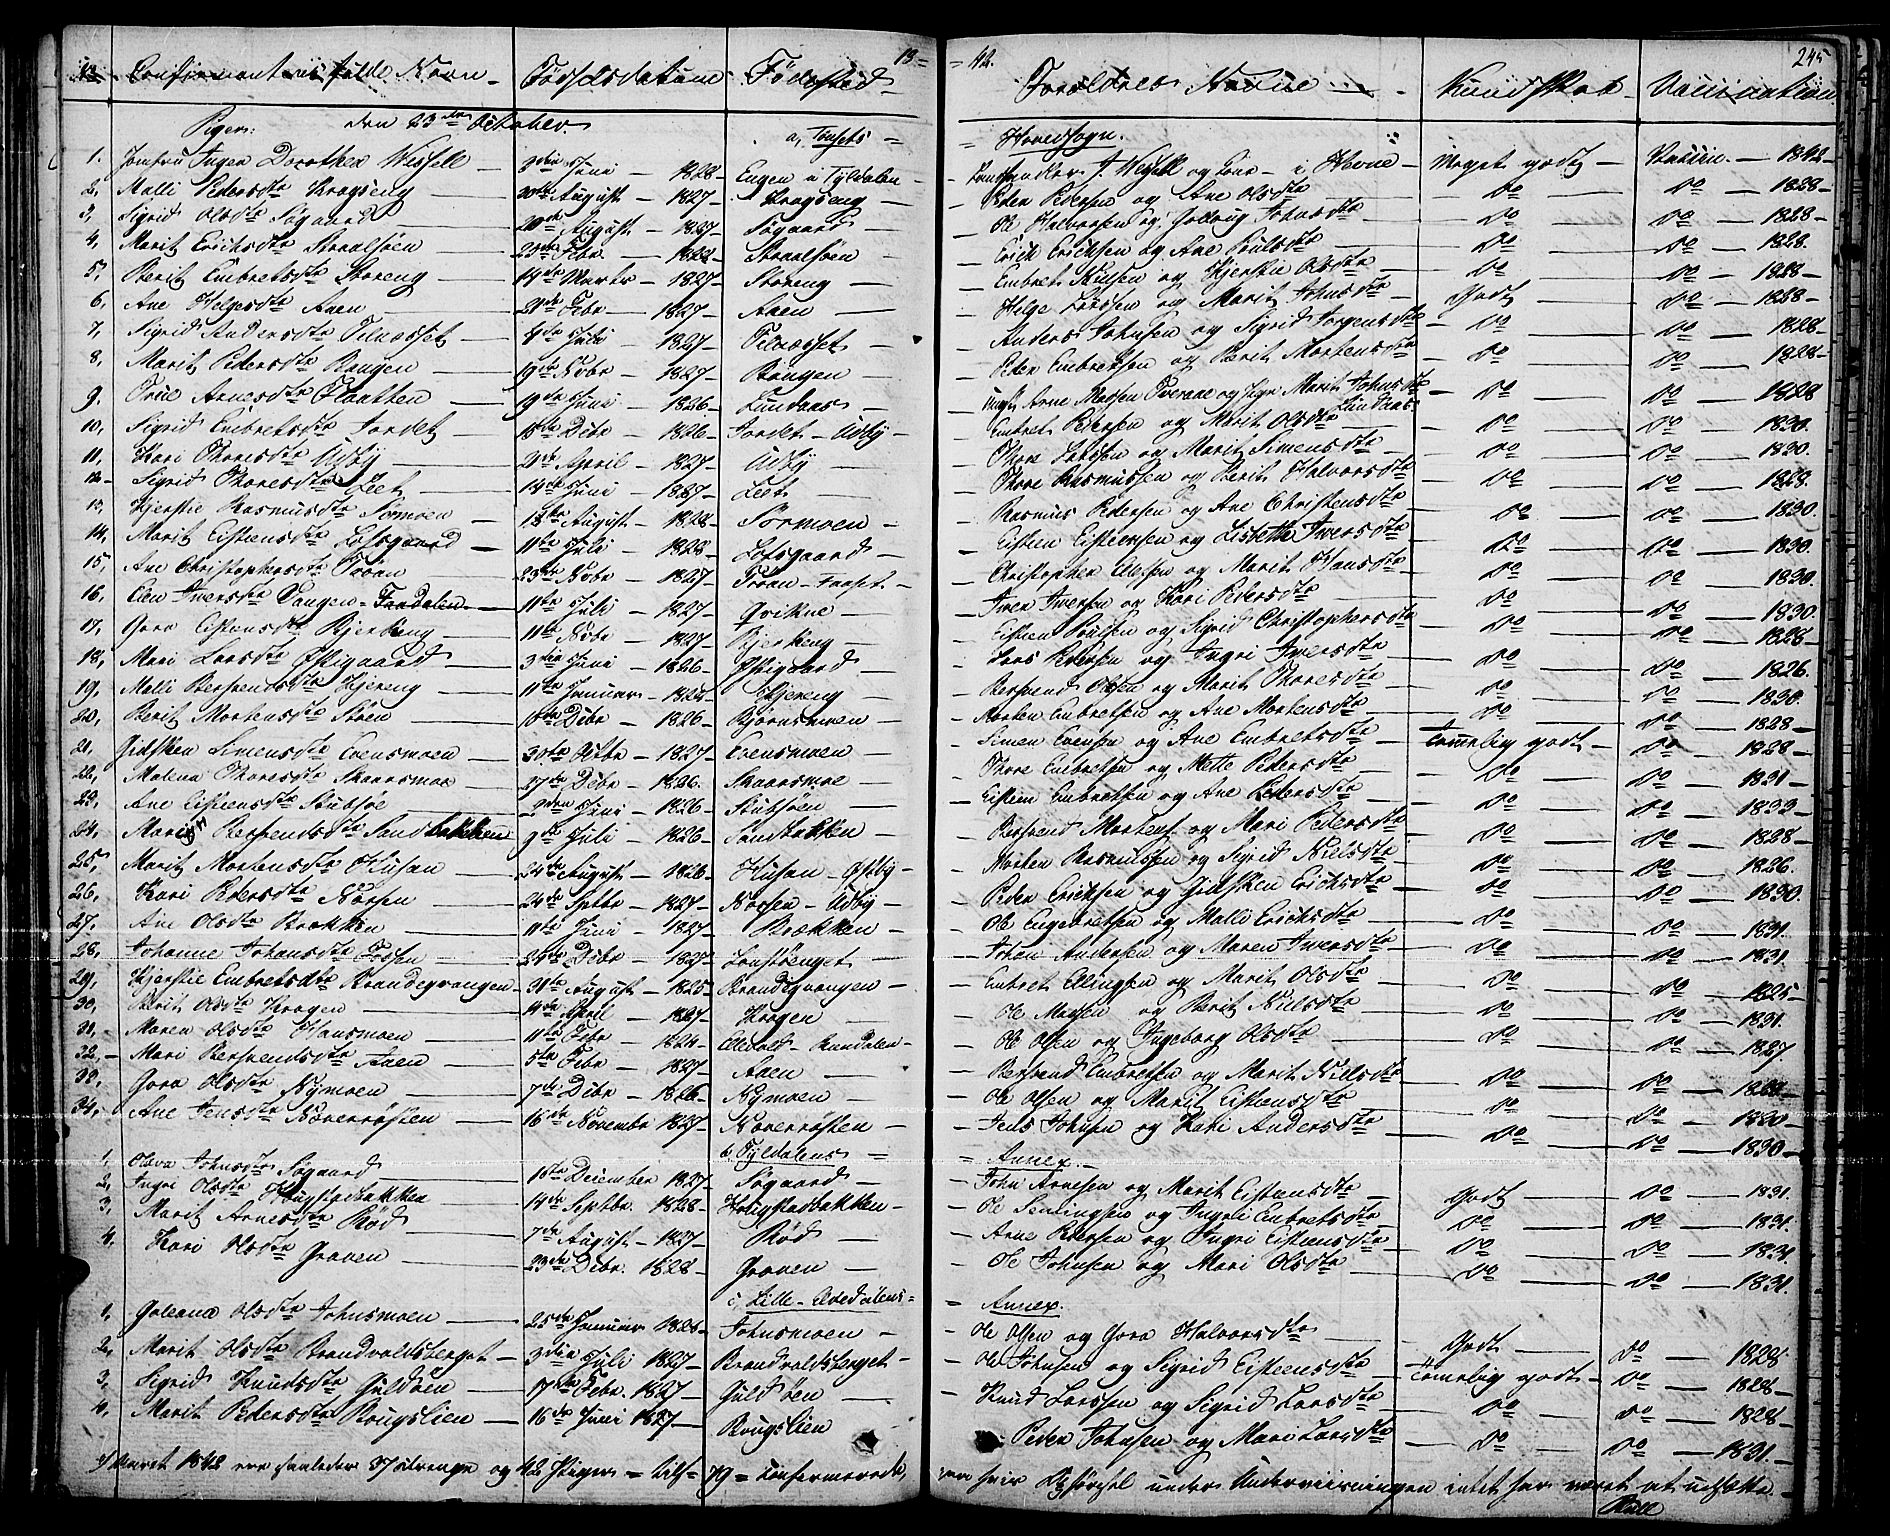 No Confirmanternes fulde Navn - Fødselsdatum Fødested - 18= =42. Forældres Navne - Kundskab - Vaccination 245
Piger: den 23de October. a, Tonsets = = Hovedsogn.
1. Jomfru Inger Dorothea Wessell - 3die Juni - 1828 - Engen i Tyldalen - J. Wessell og - i - Meget godt - Vaccin. - 1842 -
2, Malli Pedersdtr Krogseng 30te August - 1827 - Krogseng - Peder Pedersen og Ane Olsdtr - Do - Do - 1828 -
3, Sigrid Olsdtr Søgaard 20de August - 1827 - Søgaard - Ole Halvorsen og Johnsdtr - Do - Do - 1828 -
4, Marit Erichsdtr Straalsøen 23de Febr. - 1828 - Straalsøen - Erich Erichsen og Ane - Do - Do - 1828.
5, Berit Embretsdtr Storeng - 14de Marts - 1827 - Storeng - Embret Nielsen og Kjerstie Olsdtr - Do - Do - 1828 -
6, Ane Helgesdtr Aaen - 21de Febr - 1827 - Aaen - Helge Larssen og Marit Johnsdtr - Godt - Do - 1828 -
7, Sigrid Andersdtr Tilnæsset - 4de Juli - 1827 - Tilnæsset - Anders Johnsen og Sigrid Jorgensdtr - Do - Do - 1828 -
8, Marit Pedersdtr Bangen - 19de Nobr - 1827 - Bangen - Peder Embretsen og Berit Mortensdtr - Do - Do - 1828 -
9. Arnesdtr Flaatten - 19de Juni - 1826 - Lundaas - Arne og Marit Johnsdtr Lundaas - Do - Do - 1828
10, Sigrid Embretsdtr Jordet - 15de Debr - 1826 - Jordet - Udby - Embret Pedersen og Marit Olsdtr - Do - Do - 1830.
11, Kari Thoresdtr Udby - 21de April - 1827 - Udby - Thore Larssen og Marit Simensdtr - Do - Do - 1830.
12 - Sigrid Thoresdtr Leet - 14de Juni - 1827 - Leet - Thore Rasmussen og Berit Halvorsdtr - Do - Do - 1828.
13, Kjerstie Rasmusdtr Sørmoen - 12te August - 1828 - Sørmoen - Rasmus Pedersen og Ane Christensdtr - Do - Do - 1830.
14, Marit Eistensdtr Lofsgaard - 11te Juli - 1828 - Lofsgaard - Eistien Eistensen og Lisbeth Iversdtr - Do - Do - 1830.
15, Ane Christophersdtr Troen 23de Nobr - 1827 - Troen - Faaset - Christopher Ellefsen og Marit Hansdtr - Do - Do - 1830.
16, Elen Iversdtr Vangen - Faadalen - 11te Juli - 1827 - Qvikne - Iver Iversen og Kari Pedersdtr - Do - Do - 1830.
17, Goro Eistensdtr Bjerkeng - 11te Nobr - 1827 - Bjerkeng - Eistien Poulsen og Sigrid Christophersdtr - Do - Do - 1828
18, Mari Larsdtr Østigaard - 3die Juni - 1826 - Østigaard - Lars Pedersen og Ingri Iversdtr - Do - Do - 1826.
19, Malli Bersvendsdtr Kjereng - 11te Januar - 1824 - Kjereng - Bersvend Olsen og Marit Thoresdtr - Do - Do - 1830.
20, Berit Mortensdtr Støen - 10de Debr - 1826 - Bjørnsmoen - Morten Embretsen og Ane Mortensdtr - Do - Do - 1828
21, Gidsken Simensdtr Evensmoen - 30te Octbr - 1827 - Evensmoen - Simen Evensen og Ane Embretsdtr - Temmelig godt - Do - 1828 -
22, Malena Thoresdtr Skaarsmoe 27de Debr - 1826. Skaarsmoe - Thore Embretsen og Mette Pedersdtr - Do - Do - 1831 -
23, Ane Eistensdtr Stubsøe - 2den Juni - 1826 - Stubsøen - Eistien Embretsen og Ane Pedersdtr - Do - Do - 1833 -
24, Marit Bersvendsdtr Sandbakken 9de Juli - 1826 - Sandbakken - Bersvend Mortens. og Mari Pedersdtr - Do - Do - 1828 -
25, Marit Mortensdtr Husan - 24de August - 1826 - Husan - Østby - Morten Rasmussen og Sigrid Nielsdtr - Do - Do - 1826.
26, Kari Pedersdtr Norsen - 24de Septbr - 1827 - Norsen - Udby - Peder Erichsen og Gidsken Erichsdtr - Do - Do - 1830.
27, Ane Olsdtr Brækken - 11te Juni - 1827 - Brækken - Ole Engebretsen og Malli Erichsdtr - Do - Do - 1831.
28, Johanne Johansdtr Fossen - 29de Debr - 1827 - - Johan Andersen og Maren Iversdtr - Do - Do - 1831.
29, Kjerstie Embretsdtr Brandegvangen - 31te August - 1825 - Brandegvangen - Embret Ellingsen og Marit Olsdtr - Do - Do - 1825 -
30, Berit Olsdtr Krogen - 14de April - 1827 - Krogen - Ole Madsen og Berit Nielsdtr - Do - Do - 1831.
31, - Maren Olsdtr Hansmoen - 11te Febr - 1824 - - Ole Olsen og Ingeborg Olsdtr - Do - Do - 1827
32, - Mari Bersvendsdtr Aaen - 5te Febr - 1827 - Aaen - Bersvend Embretsen og Marit Nielsdtr - Do - Do - 1828 -
33, Goro Olsdtr Nymoen - 7de Debr - 1826 - Nymoen - Ole Olsen og Marit Eistensdtr - Do - Do - 1830 -
34, Ane Jensdtr Næverrøsten - 16de Novembr 1827 - Næverrøsten - Jens Johnsen og Kari Andersdtr - Do - Do - 1830 -
b, Tyldalens = = Annex.
1, Olava Johnsdtr Søgaard - 16de December 1827 - Søgaard - John Arnesen og Marit Eistensdtr - Godt - Do - 1831.
2, Ingri Olsdtr Haugstadbakken - 14de Septbr. 1828 - Haugstadbakken - Ole og Ingri Embretsdtr - Do - Do - 1831.
3, Marit Arnesdtr Rød - 7de August - 1827 - Rød - Arne Pedersen og Ingri Eistensdtr - Do - Do - 1831.
4, Kari Olsdtr Graven - 29de Debr. 1828 - Graven - Ole Johnsen og Mari Olsdtr - Do - Do - 1831.
c, Lille-Elvedalens = Annex.
1, Goleana Olsdtr Johnsmoen - 25de Januar 1826 - Johnsmoen - Ole Olsen og Goro Halvorsdtr - Godt - Do - 1828
2, Marit Olsdtr Brandvoldsberget - 3die Juli 1827 - Brandvoldsberget - Ole Johnsen og Sigrid Eistensdtr - Temelig godt - Do - 1828 -
3, Sigrid Knudsdtr Guldøen - 17de Febr. 1827 - Guldøen - Knud Larssen og Sigrid Larsdtr - Do - Do - 1828
4, Marit Pedersdtr Brugslien - 16de Juni 1827 - Brugslien - Peder Johnsen og Mari Larsdtr - Do - Do - 1831. -
I Aaret 1842 ere saaledes 37 drenge og 42 Piger = tils. 79 = Confirmerede, paa hvis Opførsel under Underviisningen intet har været at udsætte.